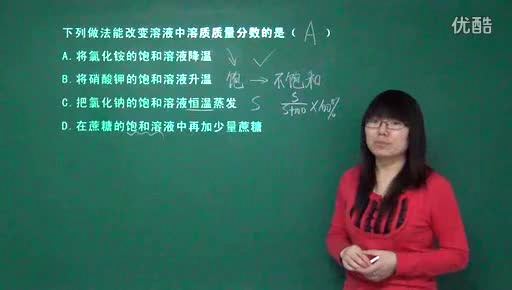 优酷
下列做法能改变溶液中溶质质量分数的是（ A ）
A. 将氯化铵的饱和溶液降温 ↓ ✓
B. 将硝酸钾的饱和溶液升温 饱 → 不饱和
C. 把氯化钠的饱和溶液恒温蒸发 S S/S+100 ×100%
D. 在蔗糖的饱和溶液中再加少量蔗糖